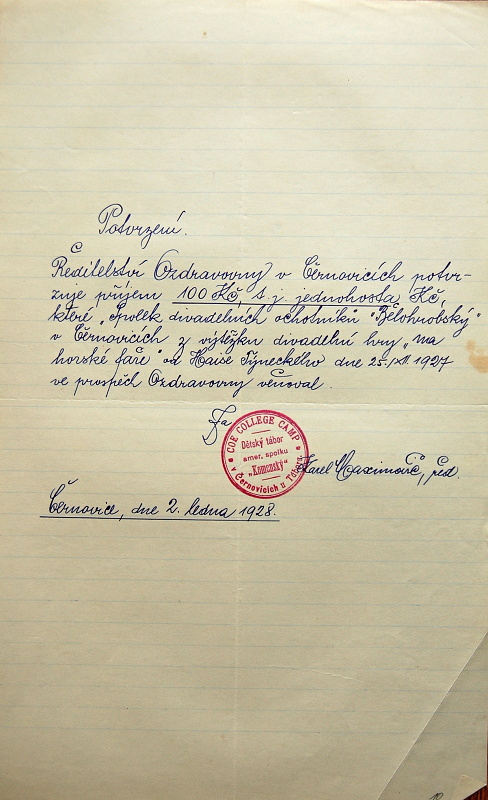 Potvrzení.
Ředitelství Ozdravovny v Černovicích potvr-
zuje příjem 100 Kč, t. j. jednohosta Kč,
které „Spolek divadelních ochotníků "Bělohrobský"
v Černovicích z výtěžku divadelní hry „Na
horské faře" od Haise Týneckého dne 25./XII 1927
ve prospěch Ozdravovny věnoval.
Za
COE COLLEGE CAMP
Dětský tábor
amer. spolku
„Komenský"
v Černovicích u Tábora
Karel Maximovič, řed.
Černovice, dne 2. ledna 1928.